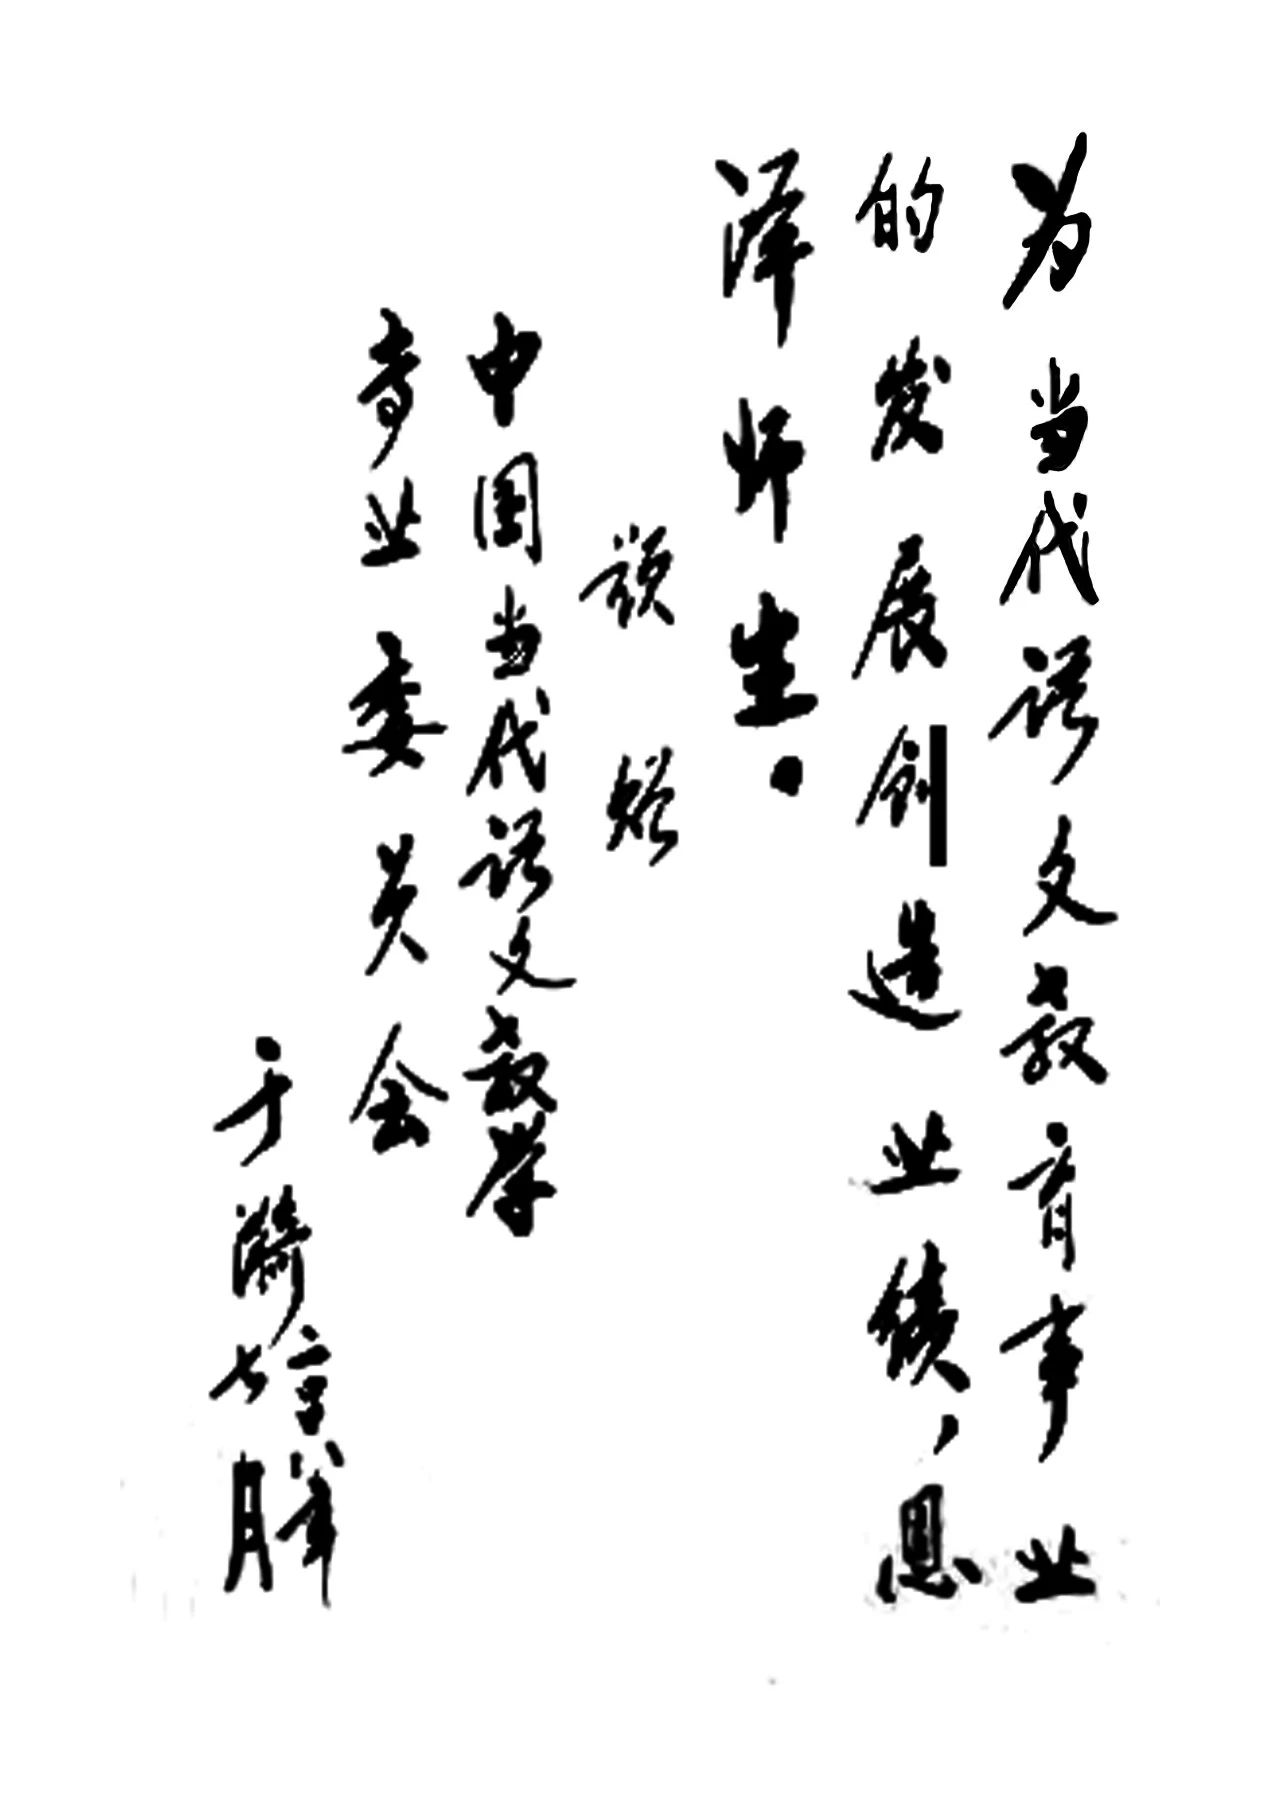 为当代语文教育事业
的发展创造业绩，恩
泽师生。
中国当代语文教学
专业委员会
于漪
二〇〇八年
七月